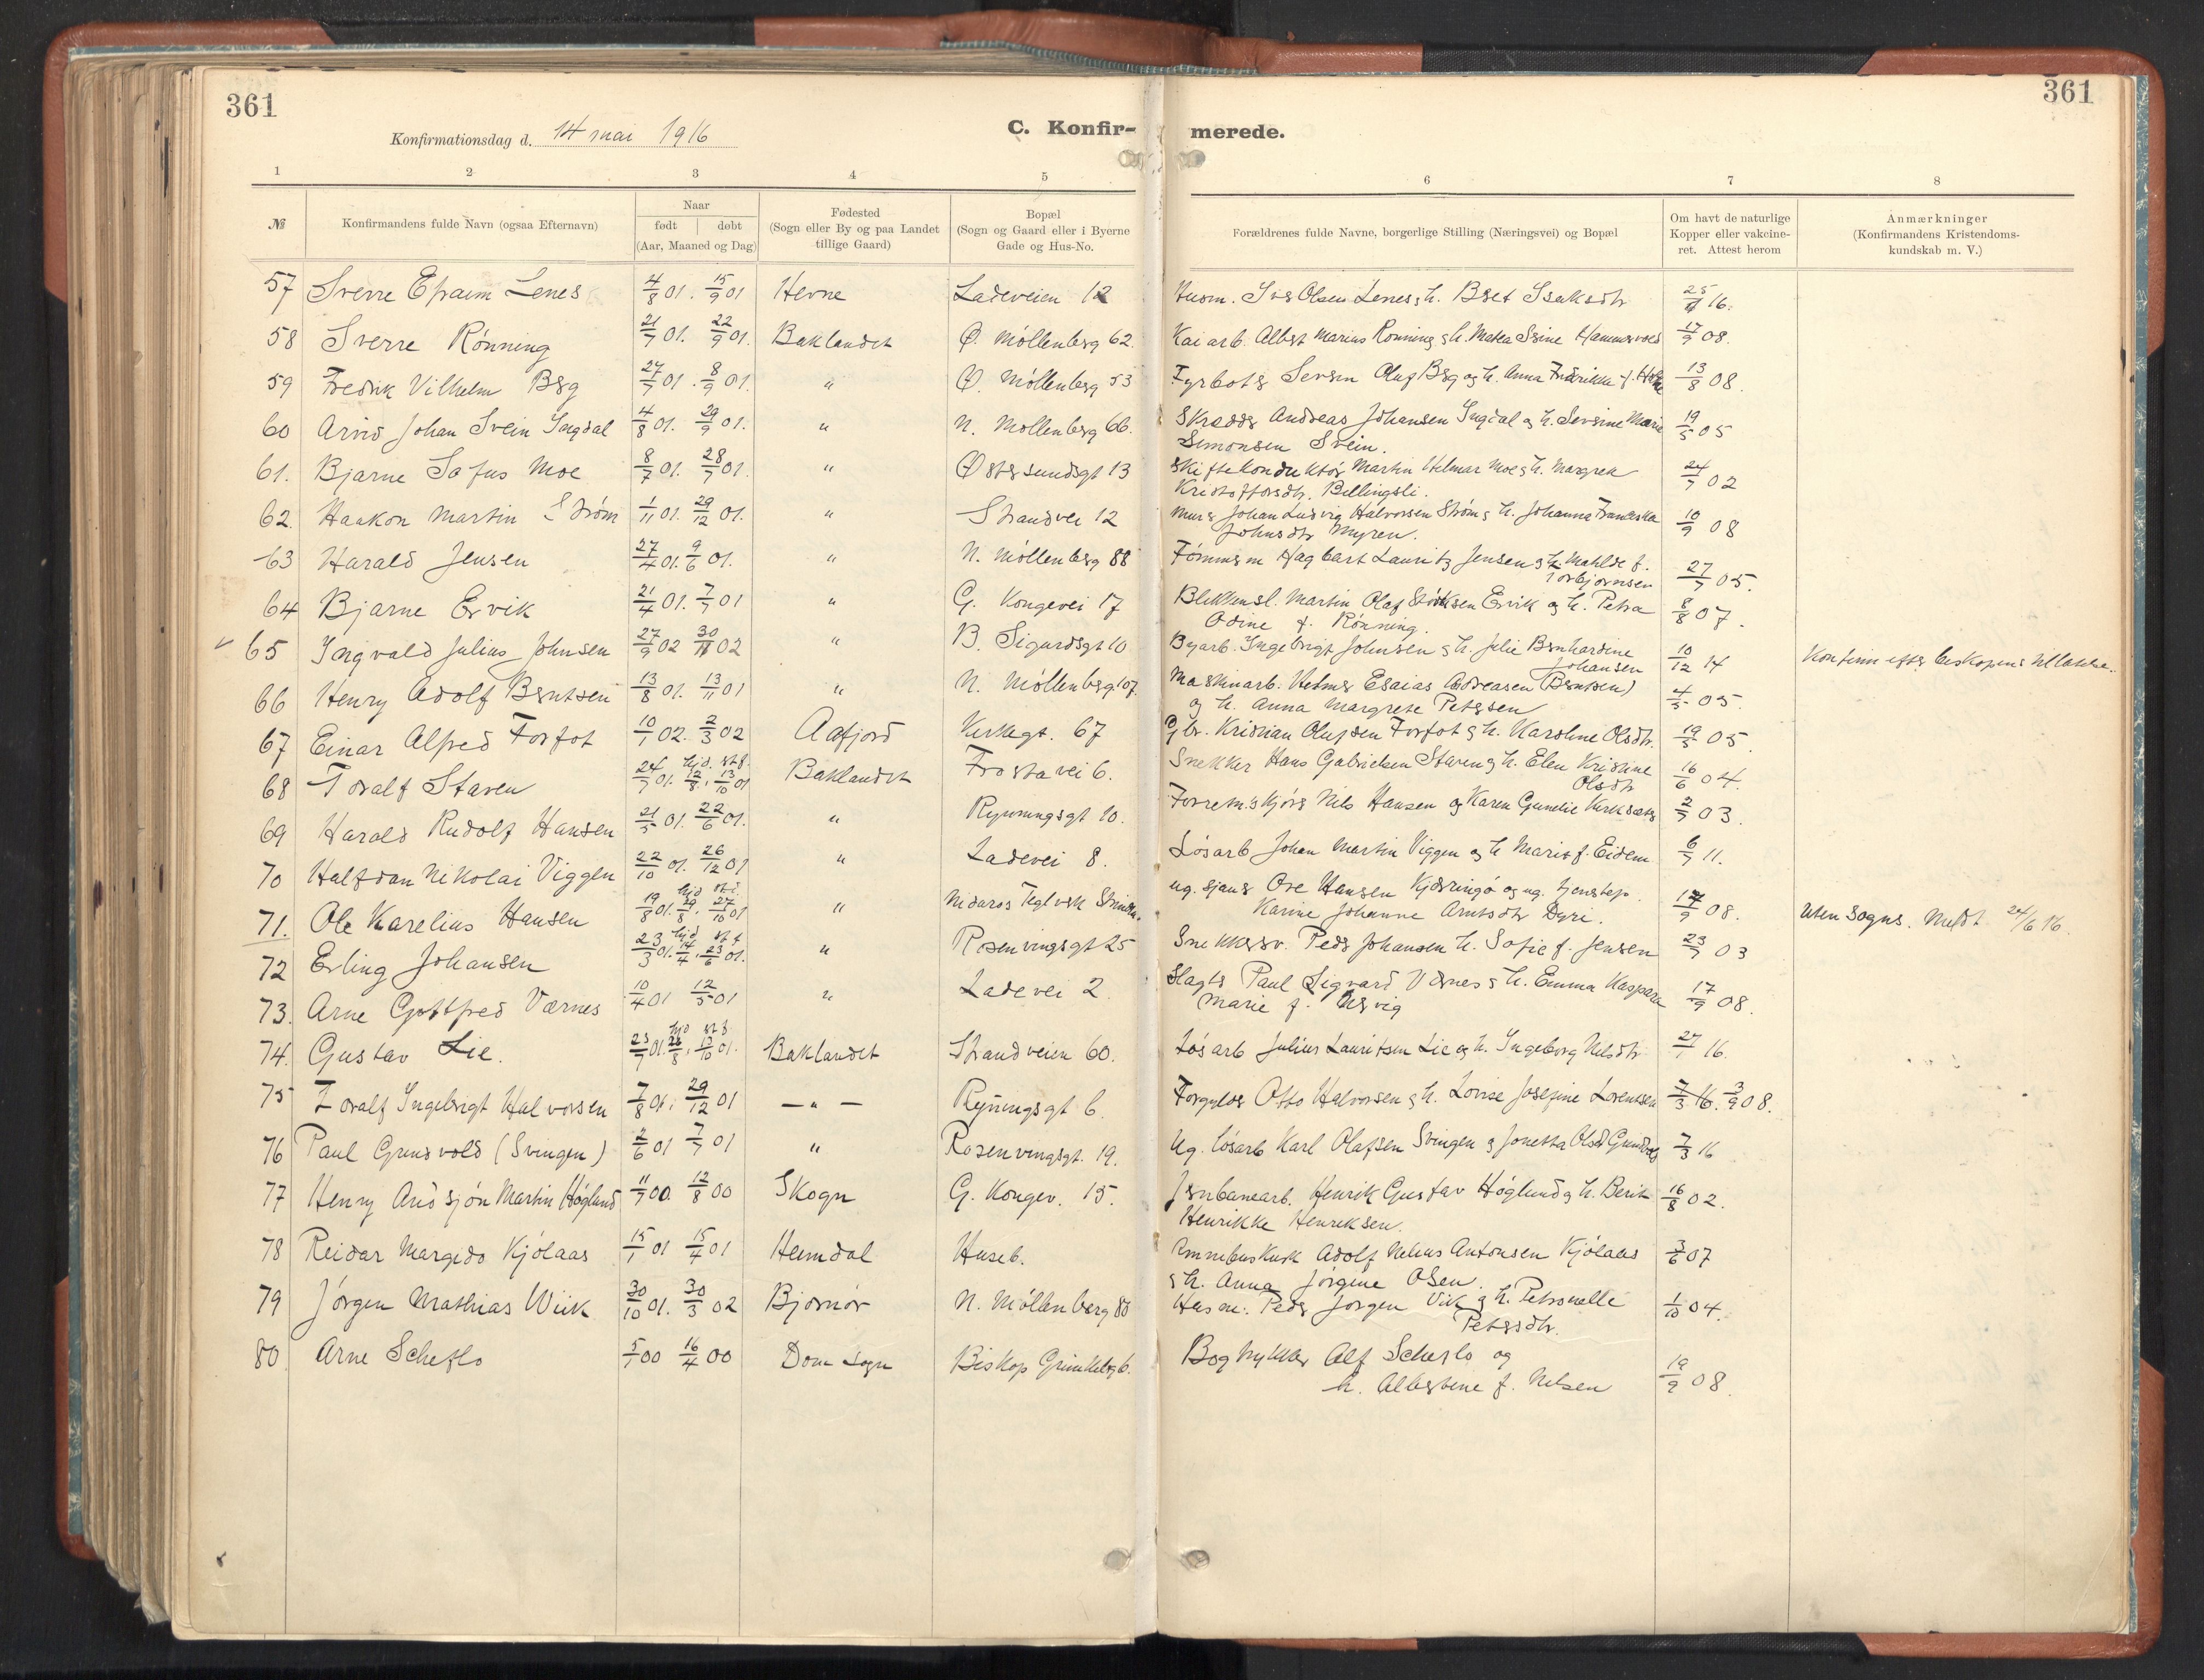 361
361
Konfirmationsdag d. 14 mai 1916
C. Konfir-
merede.
1 2 3 4 5 6 7 8
№
Konfirmandens fulde Navn (ogsaa Efternavn)
Naar
født døbt
(Aar, Maaned og Dag)
Fødested
(Sogn eller By og paa Landet
tillige Gaard)
Bopæl
(Sogn og Gaard eller i Byerne
Gade og Hus-No.
Forældrenes fulde Navne, borgerlige Stilling (Næringsvei) og Bopæl
Om havt de naturlige
Kopper eller vakcine-
ret. Attest herom
Anmærkninger
(Konfirmandens Kristendoms-
kundskab m. V.)
57 Sverre Efraim Lenes 4/8 01. 15/9 01 Hevne Ladeveien 12 Husm. Olsen Lenes, h. Isaksdtr 25/ 16.
58 Sverre Rønning 21/7 01. 22/9 01. Baklandet Ø. Møllenberg 62. Kaiarb. Albert Marius Rønning, h. Matea 17/9 08.
59 Fredrik Vilhelm Berg 27/7 01. 8/9 01. " Ø. Møllenberg 53 Fyrbøter Seversen Oluf Berg og h. Anna Fredrikke f. 13/8 08.
60 Arvid Johan Svein Ingdal 4/8 01. 29/9 01. " N. Møllenberg 66. Skrædd. Andreas Johansen Ingdal og h. Severine Marie 19/5 05
Simonsen Svein.
61. Bjarne Sofus Moe 8/7 01. 28/7 01. " Østersundsgt 13 Skiftekonduktør Martin Hilmar Moe, h. Margrete 24/7 02
Kristoffersdtr. Billingsli.
62. Haakon Martin Strøm 1/11 01. 29/12 01. " Strandvei 12 Murer Johan Ludvig Halvorsen Strøm, h. Johanna Franciska 10/9 08
Johnsdtr Myren.
63 Harald Jensen 27/4 01. 9/6 01. " N. Møllenberg 88 Tømmerm Hagbart Lauritz Jensen og h. Mathilde f. 27/7 05.
Torbjørnsen
64 Bjarne Ervik 21/4 01. 7/7 01 " G. Kongevei 17 Blikkensl. Martin Olaf Ervik og h. Petra 8/8 07.
Odine f. Rønning.
65 Ingvald Julius Johnsen 27/9 02 30/11 02 " B. Sigurdsgt 10 Byarb. Ingebrigt Johnsen, h. Julie Bernhardine 10/12 14 Konfirm. efter biskopens tilladelse.
Johansen
66 Henry Adolf Berntsen 13/8 01. 13/11 01 " N. Møllenberg 107. Maskinarb. Helmer Esaias Andreasen (Berntsen) 4/5 05.
og h. Anna Margrete Petersen
67 Einar Alfred Forfot 10/1 02. 2/3 02 Aafjord Kirkegt. 67 Gbr. Kristian Olufsen Forfot, h. Karoline Olsdtr. 19/5 05.
68 Toralf Staven 24/7 01. hjd. 12/8. stf. 13/10 01 Baklandet Frostavei 6. Snekker Hans Gabrielsen Staven, h. Elen Kristine 16/6 04.
Olsdtr
69 Harald Rudolf Hansen 21/5 01. 22/6 01. " Rynningsgt 10. Nils Hansen og Karen Gunelie 2/7 03.
70 Halfdan Nikolai Viggen 22/10 01. 26/12 01 " Ladevei 8. Løsarb Johan Martin Viggen og h Marie f. Eidem 6/7 11.
71. Ole Karelius Hansen 19/8 01. hjd 29/8. stf. 27/10 01 " Nidaros Teglverk ug. sjauer Ove Hansen og ug. tjenstep. 17/9 08. Uten sogns. Meldt 24/6 16.
Karine Johanne Arntsdtr Dyri.
72 Erling Johansen 23/3 01. hjd 14/4. stf 23/6 01. " Rosenvingsgt 25 Snekkersv. Peder Johansen h. Sofie f. Jensen 23/7 03
73. Arne Gottfred Værnes 10/4 01 12/5 01 " Ladevei 2 Slagter Paul Sigvard Værnes, h. Emma Kaspara 17/9 08.
Marie f.
74. Gustav Lie. 23/7 01. hjd 26/8. stf 13/10 01. Baklandet Strandveien 60. Løsarb Julius Lauritsen Lie og h. Ingeborg Nilsdtr 27/1 16.
75 Toralf Ingebrigt Halvorsen 7/8 01. 29/12 01 — " — Rynningsgt 6. Forgylder Otto Halvorsen, h. Lovise Josefine Lorentsen 7/3 16. 3/9 08.
76 Paul Grundvold (Svingen) 2/6 01 7/7 01 " Rosenvingsgt. 19. Ug. løsarb Karl Olafsen Svingen og Jonetta 7/3 16
77 Henry Martin Høglund 11/7 00. 12/8 00 Skogn G. Kongev. 15. Jernbanearb. Henrik Gustav Høglund og h. Berit 16/8 02.
Henrikke Henriksen.
78 Reidar Margido Kjølaas 15/1 01 15/4 01 Heimdal Huseb. Omnibuskusk Adolf Nelius Antonsen Kjølaas 3/6 07
og h. Anna Jørgine Olsen.
79 Jørgen Mathias Wiik 30/10 01. 30/3 02 Bjørnør N. Møllenberg 80 Husm. Peder Jørgen Vik og h. Petronelle 1/10 04.
Petersdtr.
80. Arne Scheflo 5/1 00 16/4 00 Dom sogn Biskop Grimkelsg 6. Bogtrykker Alf Scheflo og 19/9 08.
h. Albertine f. Nilsen